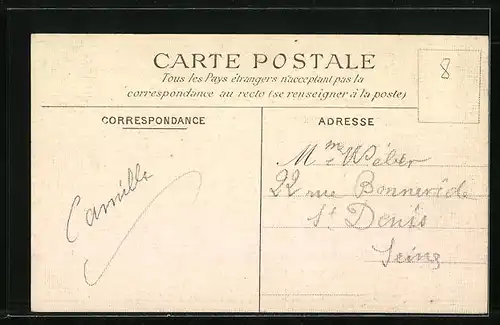 CARTE POSTALE
Tous les Pays étrangers n'acceptant pas la
correspondance au recto (se renseigner à la poste)
8
CORRESPONDANCE
ADRESSE
Mme Wéber
22 rue
St Denis
Seine
Camille